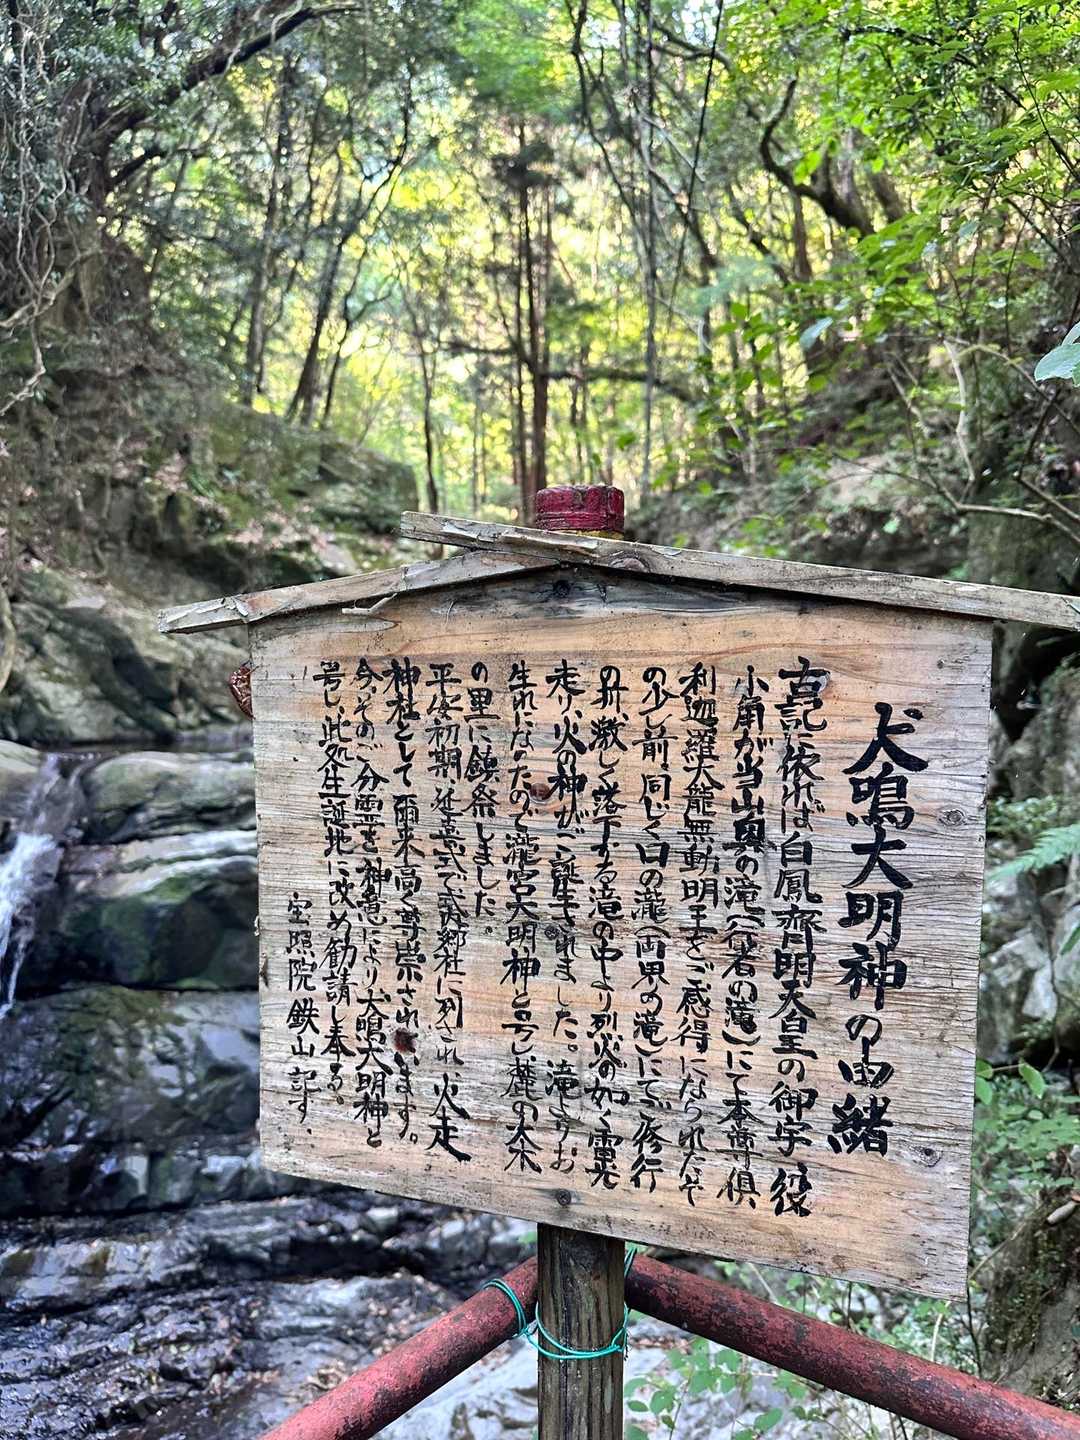 犬鳴大明神の由緒
古記に依れば白鳳齊明天皇の御宇役
小角が当山奥の滝(行者の滝)にて本尊倶
利迦羅大龍無動明王をご感得になられたそ
の少し前、同じく口の瀧(両界の滝)にてご修行
の折、激しく落下する滝の中より烈火の如く電光
走り、火の神がご誕生されました、滝よりお
生れになったので瀧宮大明神と号し、麓の大木
の里に鎮祭しました。
平安初期延喜式で式内郷社に列され、火走
神社として爾来高く尊崇されています。
今、そのご分霊を神意により犬鳴大明神と
号し、此処生誕地に改め勧請し奉る。
宝照院鉄山記す、